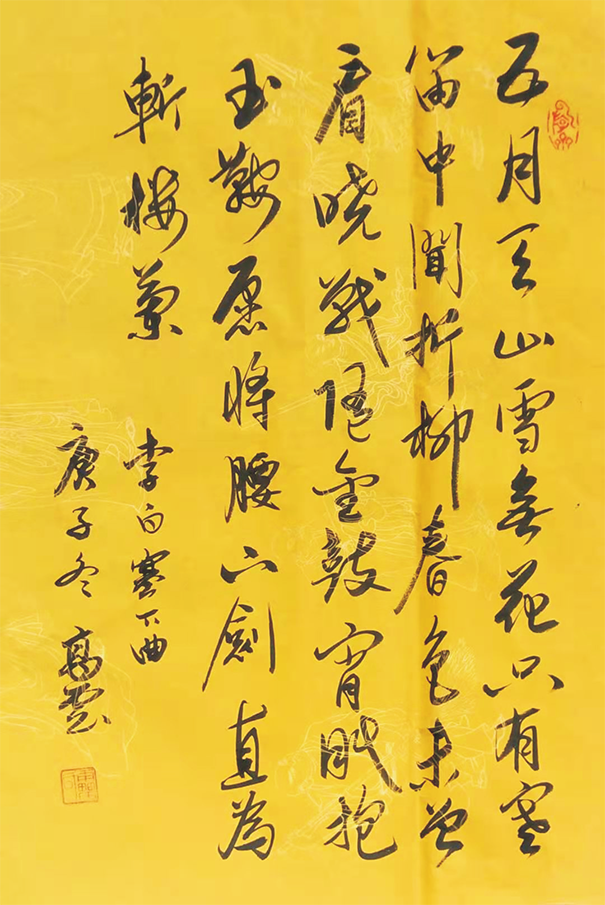 五月天山雪無花只有寒
笛中聞折柳春色未曾
看晓戰随金鼓宵眠抱
玉鞍愿將腰下劍直為
斬樓蘭
李白塞下曲
庚子冬